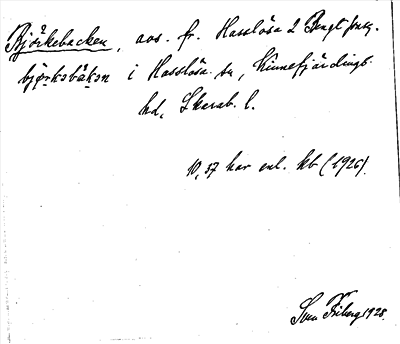 Björkebacken, avs. fr. Hasslösa 2 Bengt Jons.
björkəbàkən i Hasslösa sn, Kinnefjärdings
hd, Skarab. l.
10,37 har enl. kb (1926).
Sven Friberg 1928.